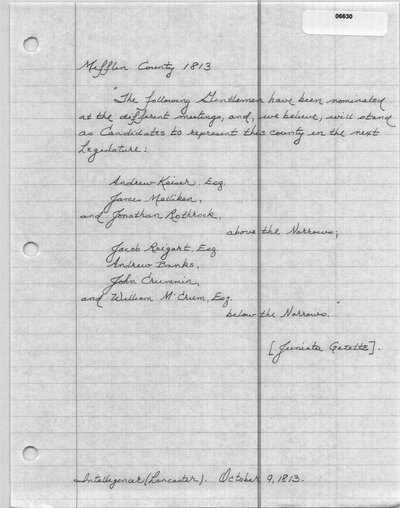 06630
Mifflin County 1813
"The following Gentlemen have been nominated
at the different meetings, and, we believe, will stand
as Candidates to represent this county in the next
Legislature:
Andrew Keiser, Esq.
James Milliken,
and Jonathan Rothrock,
above the Narrows;
Jacob Reigart, Esq
Andrew Banks,
John Crummin,
and William M'Crum, Esq.
below the Narrows."
[Juniata Gazette].
Intelligencer (Lancaster). October 9, 1813.